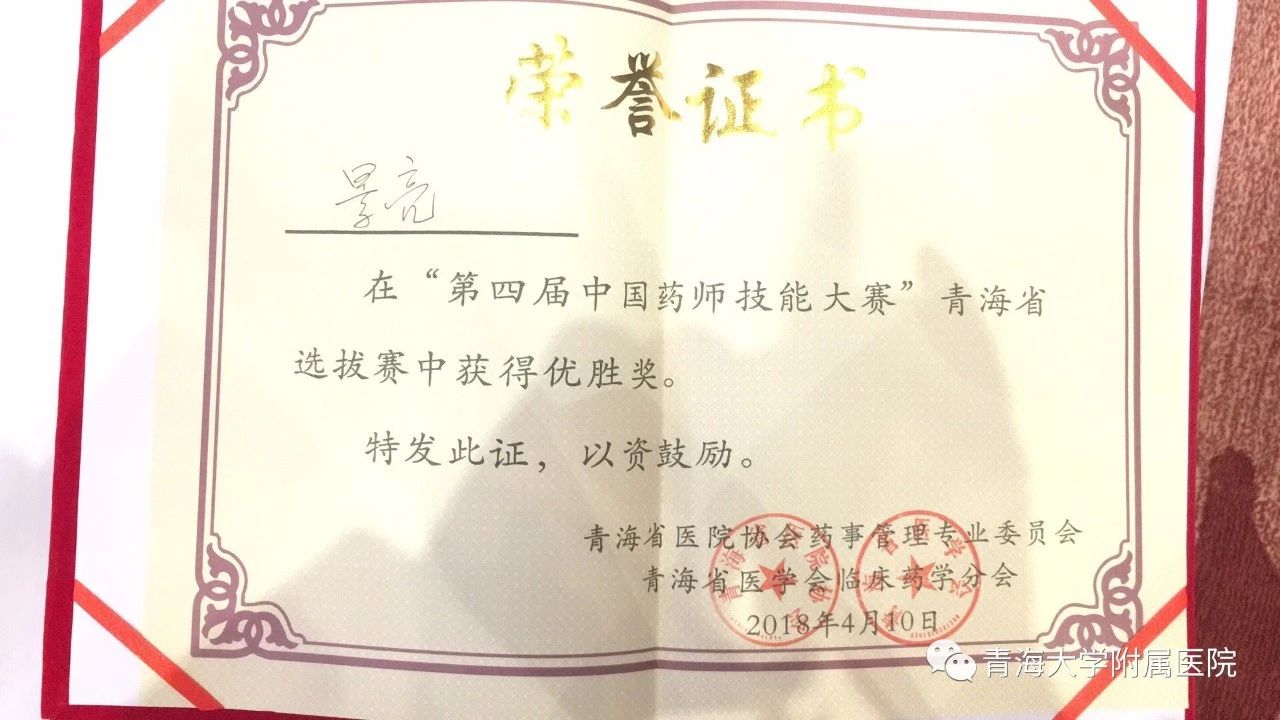 荣誉证书
景亮
在“第四届中国药师技能大赛”青海省
选拔赛中获得优胜奖。
特发此证，以资鼓励。
青海省医院协会药事管理专业委员会
青海省医学会临床药学分会
2018年4月10日
青海大学附属医院